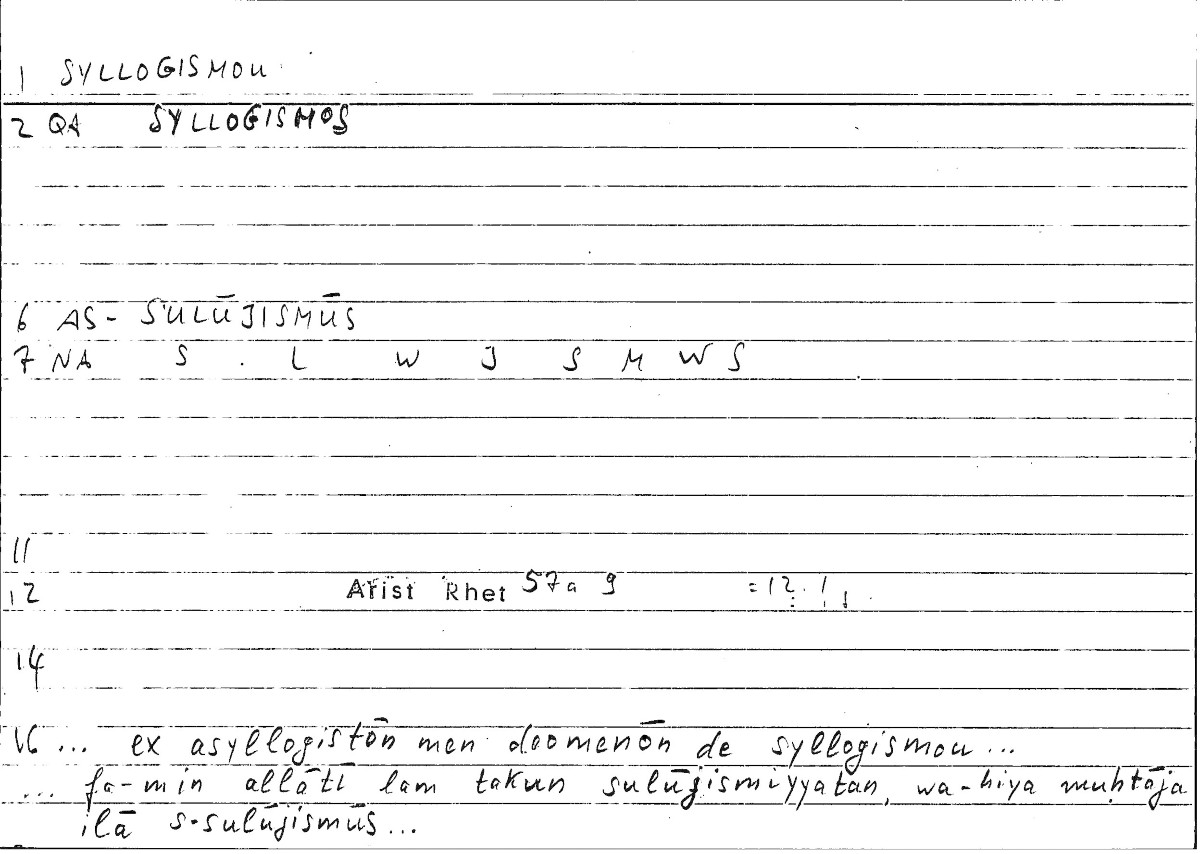 1 SYLLOGISMOU
2 QA SYLLOGISMOS
6 AS- SULŪJISMŪS
7 NA S . L W J S M W S
11
12 Arist Rhet 57a 9 =12.1
14
16 ... ex asyllogistōn men deomenōn de syllogismou ...
... fa-min allātī lam takun sulūjismiyyatan, wa-hiya muḥtāja
ilā s-sulūjismūs ...